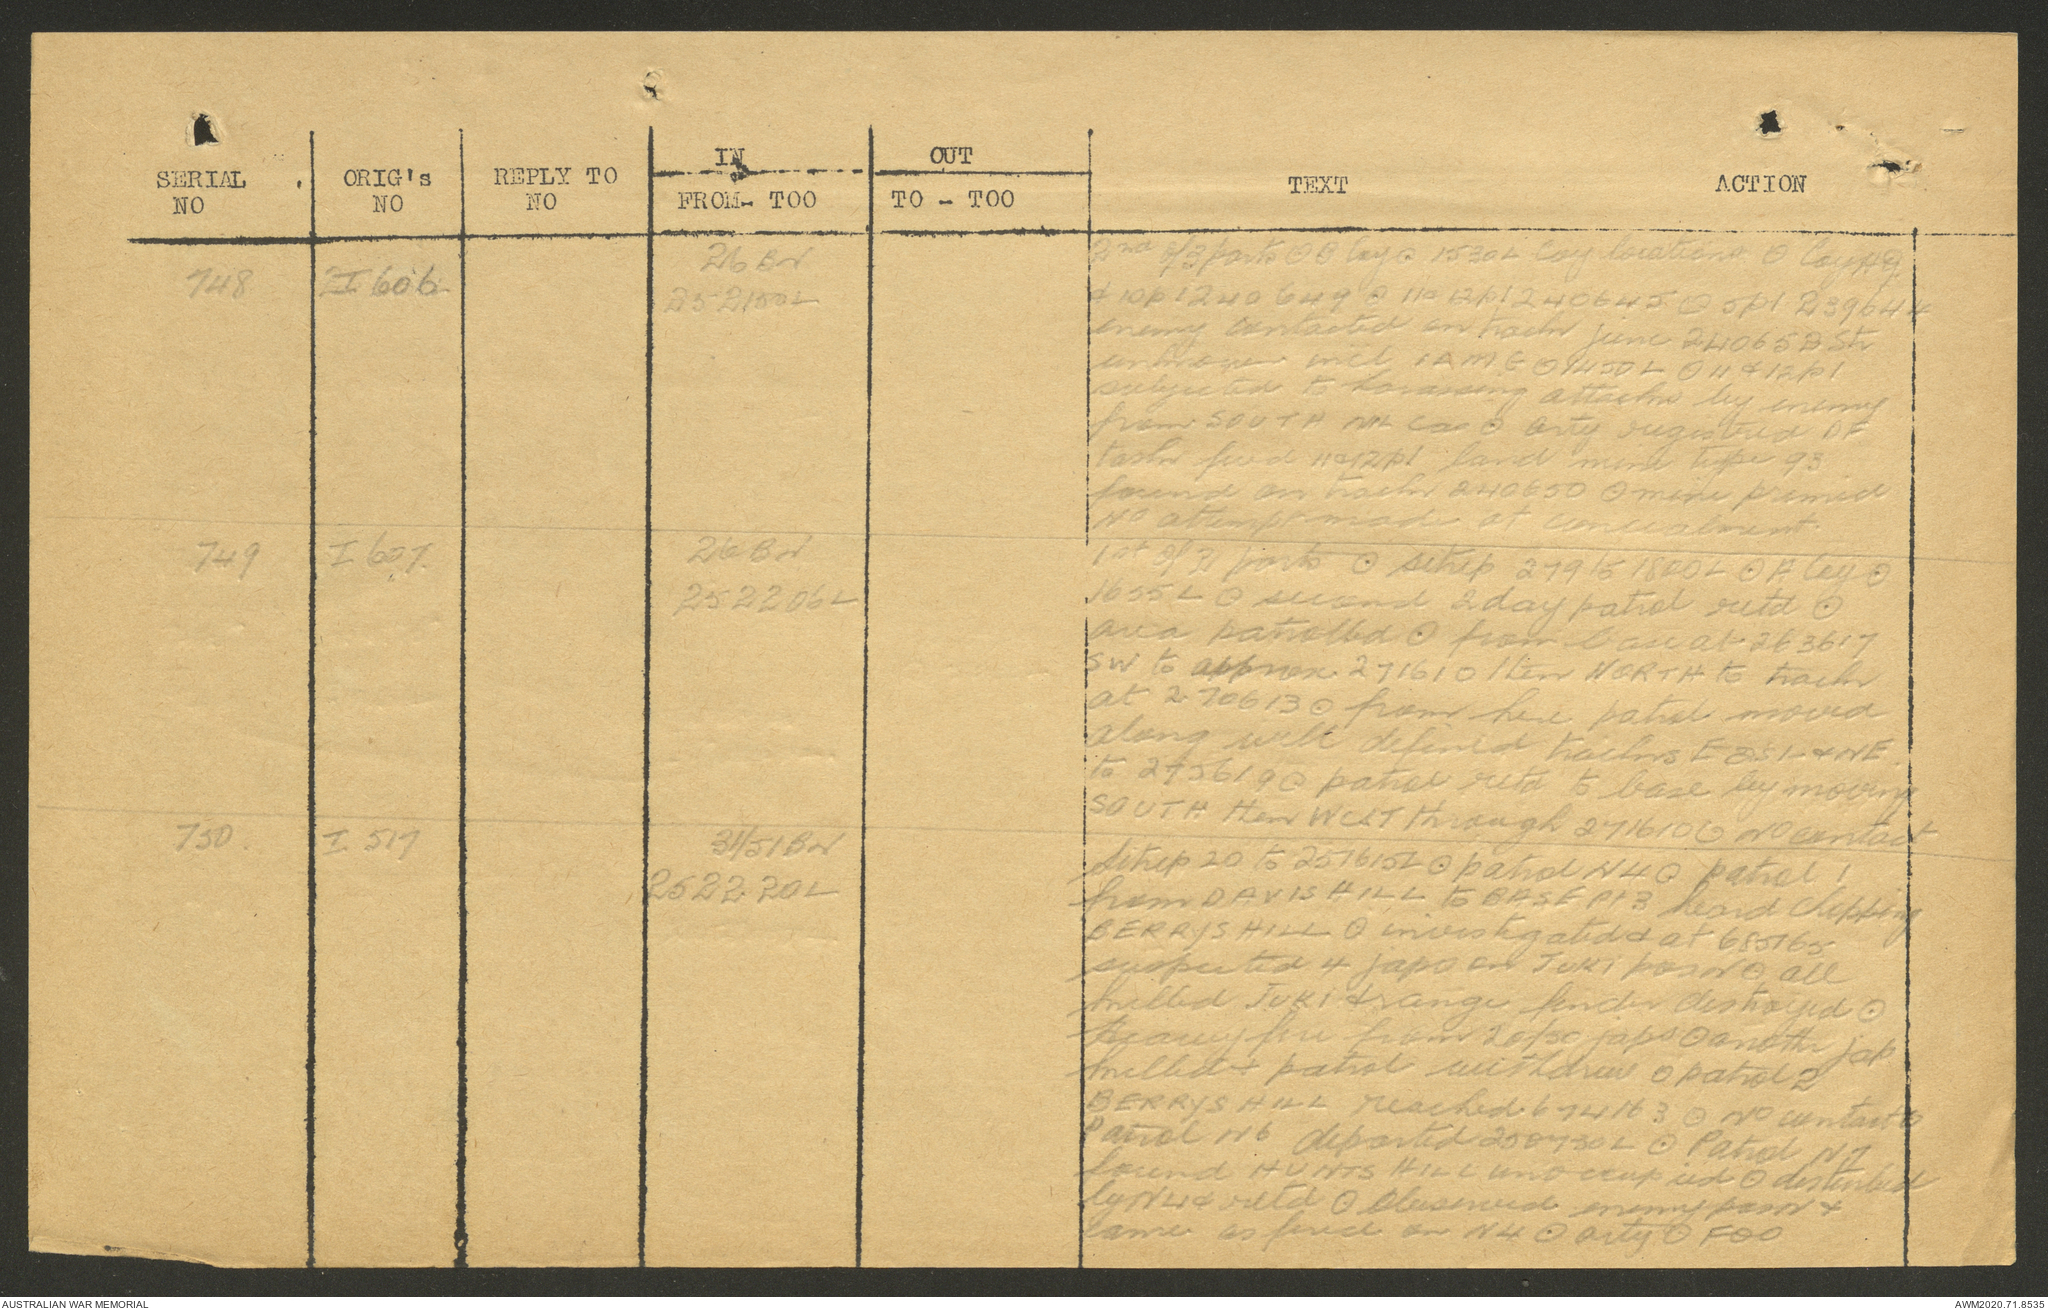 SERIAL NO
ORIG's NO
REPLY TO NO
IN
FROM - TOO
OUT
TO - TOO
TEXT
ACTION
748
I 606
26 BN
252150L
2nd of 3 parts ⊙ B Coy ⊙ 1530L Coy locations ⊙ Coy HQ
& 10 pl 240649 ⊙ 11 & 12 pl 240645 ⊙ 5 pl 239644
enemy contacted on track junc 24065B Str
unknown incl 1 AMG ⊙ 1450L ⊙ 11 & 12 pl
subjected to harassing attacks by enemy
from SOUTH NIL cas ⊙ Arty registered DF
tasks fwd 11 & 12 pl land mine type 93
found on track 240650 ⊙ mine primed
No attempt made at concealment
749
I 607
26 BN
252206L
1st of 3 parts ⊙ sitrep 279 to 1800L ⊙ A Coy ⊙
1655L ⊙ second 2 day patrol retd ⊙
area patrolled ⊙ from base at 263617
SW to approx 271610 then NORTH to track
at 270613 ⊙ from here patrol moved
along well defined tracks EAST & NE
to 275619 ⊙ patrol retd to base by moving
SOUTH then WEST through 271610 ⊙ No contact
750
I 517
31/51 BN
252220L
Sitrep 20 to 251615L ⊙ patrol N4 ⊙ patrol 1
from DAVIS HILL to BASE PT 3 heard chopping
BERRYS HILL ⊙ investigated & at 685165
suspected 4 japs on JUKI posn ⊙ all
killed JUKI & range finder destroyed ⊙
Heavy fire from 20/30 japs ⊙ another jap
killed & patrol withdrew ⊙ patrol 2
BERRYS HILL reached 674163 ⊙ No contact ⊙
Patrol N6 departed 250730L ⊙ Patrol N7
found HUNTS HILL unoccupied ⊙
by N4 & retd ⊙ Observed enemy posn &
same as fired on N4 ⊙ arty ⊙ FOO
AUSTRALIAN WAR MEMORIAL
AWM2020.71.8535